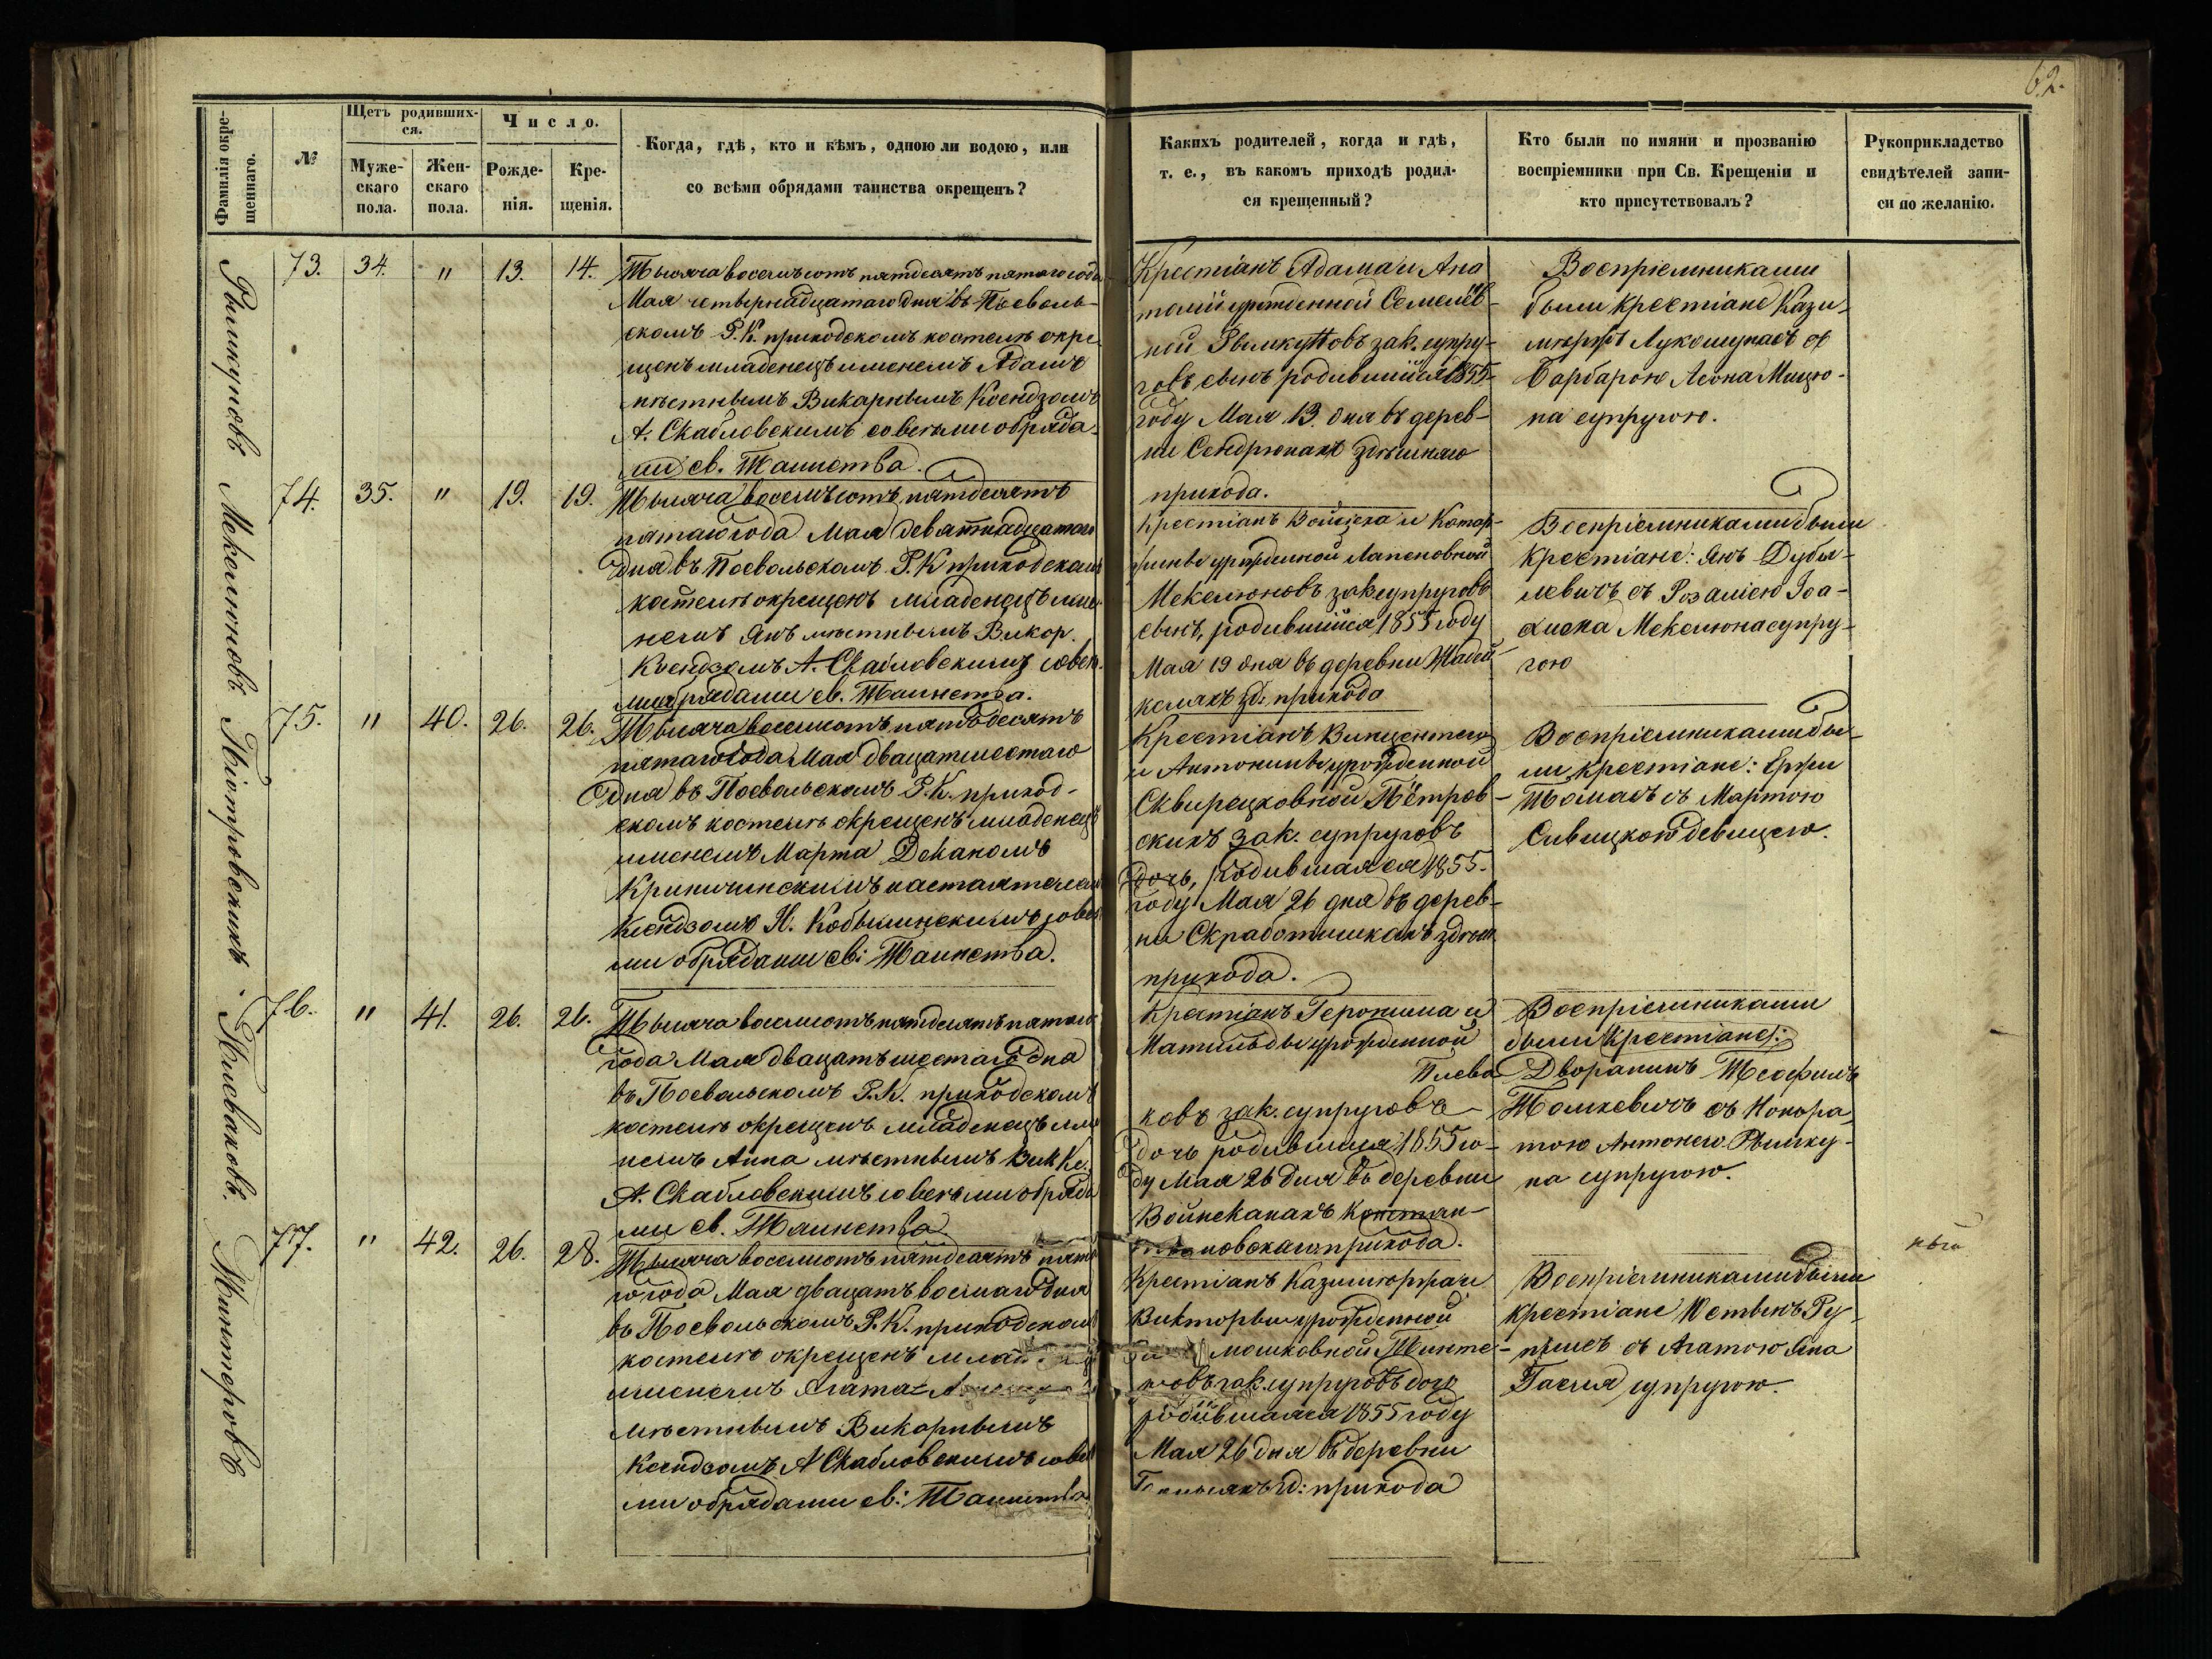 62.
Фамилія окре-
щеннаго.
№
Щетъ родивших-
ся.
Муже-
скаго
пола.
Жен-
скаго
пола.
Число.
Рожде-
нія.
Кре-
щенія.
Когда, гдѣ, кто и кѣмъ, одною ли водою, или
со всѣми обрядами таинства окрещенъ?
Какихъ родителей, когда и гдѣ,
т. е., въ какомъ приходѣ родил-
ся крещенный?
Кто были по имяни и прозванію
воспріемники при Св. Крещеніи и
кто присутствовалъ?
Рукоприкладство
свидѣтелей запи-
си по желанію.
Рымкуновъ
73. 34. " 13. 14.
Тысяча восемьсотъ пятдесятъ пятаго года
Мая четвернадцатаго дня въ Посволь-
скомъ Р. К. приходскомъ костелѣ окре
щенъ младенецъ именемъ Адамъ
мѣстнымъ Викарнымъ Ксендзомъ
А. Скабловскимъ со всѣми обряда-
ми св. Таинства.
Крестіанъ Адама и Ана
толіи урожденной
ной зак. супру-
говъ сынъ родившійся 1855
году Мая 13. дня въ дерев-
ни Сендрюнахъ здѣшняго
прихода.
Воспріемниками
были крестіане Кази-
съ
Барбарою Леона Мицю-
на супругою.
Мекелюновъ
74. 35. " 19. 19.
Тысяча восемьсотъ пятдесятъ
пятаго года Мая девятнадцатаго
дня въ Посвольскомъ Р. К приходскомъ
костелѣ окрещенъ младенецъ име-
немъ Янъ мѣстнымъ Викар.
Ксендзомъ А. Скабловскимъ со всѣ-
ми обрядами св. Таинства.
Крестіанъ Войцеха и Катар-
жины урожденной Лапеновной
Мекелюновъ зак. супруговъ
сынъ, родившійся 1855 году
Мая 19 дня въ деревни Жадей-
келяхъ зд. прихода
Воспріемниками были
Крестіане: Янъ Дубы-
левичъ съ Розаліею Іоа-
хима Мекелюна супру-
гою
Піотровскихъ.
75. " 40. 26. 26.
Тысяча восемсотъ пятьдесятъ
пятаго года Мая двацатшестаго
дня въ Посвольскомъ Р. К. приход-
скомъ костелѣ окрещенъ младенецъ
именемъ Марта Деканомъ
настоятелемъ
Ксендзомъ Н. Кобылинскимъ со всѣ
ми обрядами св: Таинства.
Крестіанъ Винцентего
и Антонины урожденной
Сквирецковной Пётров-
скихъ зак. супруговъ
дочь, родившаяся 1855.
году Мая 26 дня въ дерев-
ни здѣшн.
прихода.
Воспріемниками бы-
ли крестіане: Ержи
Томасъ съ Мартою
Сивицкою девицею.
Плеваковъ.
76. " 41. 26. 26.
Тысяча восемсотъ пятдесятъ пятаго
года Мая двацатъ шестаго дня
въ Посвольскомъ Р. К. приходскомъ
костелѣ окрещенъ младенецъ име
немъ Анна мѣстнымъ Вик Кс.
А. Скабловскимъ со всѣми обряда
ми св. Таинства
Крестіанъ Геронима и
Матильды урожденной
Плева
ковъ зак. супруговъ
дочь родившаяся 1855 го-
ду Мая 26 дня въ деревни
Войшканахъ Констан-
тиновскаго прихода.
Воспріемниками
были Крестіане:
Дворянинъ Теофилъ
Томкевичъ съ Нонора
тою Антонего Рымку-
на супругою.
Жинтеровъ
77. " 42. 26. 28.
Тысяча восемсотъ пятдесятъ пята
го года Мая двацатъ восмаго дня
въ Посвольскомъ Р. К. приходском
костелѣ окрещенъ млад
именемъ Агата
мѣстнымъ Викарнымъ
Ксендзомъ А Скабловскимъ со всѣ
ми обрядами св: Таинства.
Крестіанъ Казимержа и
Викторыи урожденной
мошковной Жинте-
ровъ зак. супруговъ дочь
родившаяся 1855 году
Мая 26 дня въ деревни
зд: прихода
Воспріемниками были
крестіане Юстынъ
съ Агатою Яна
супругою.